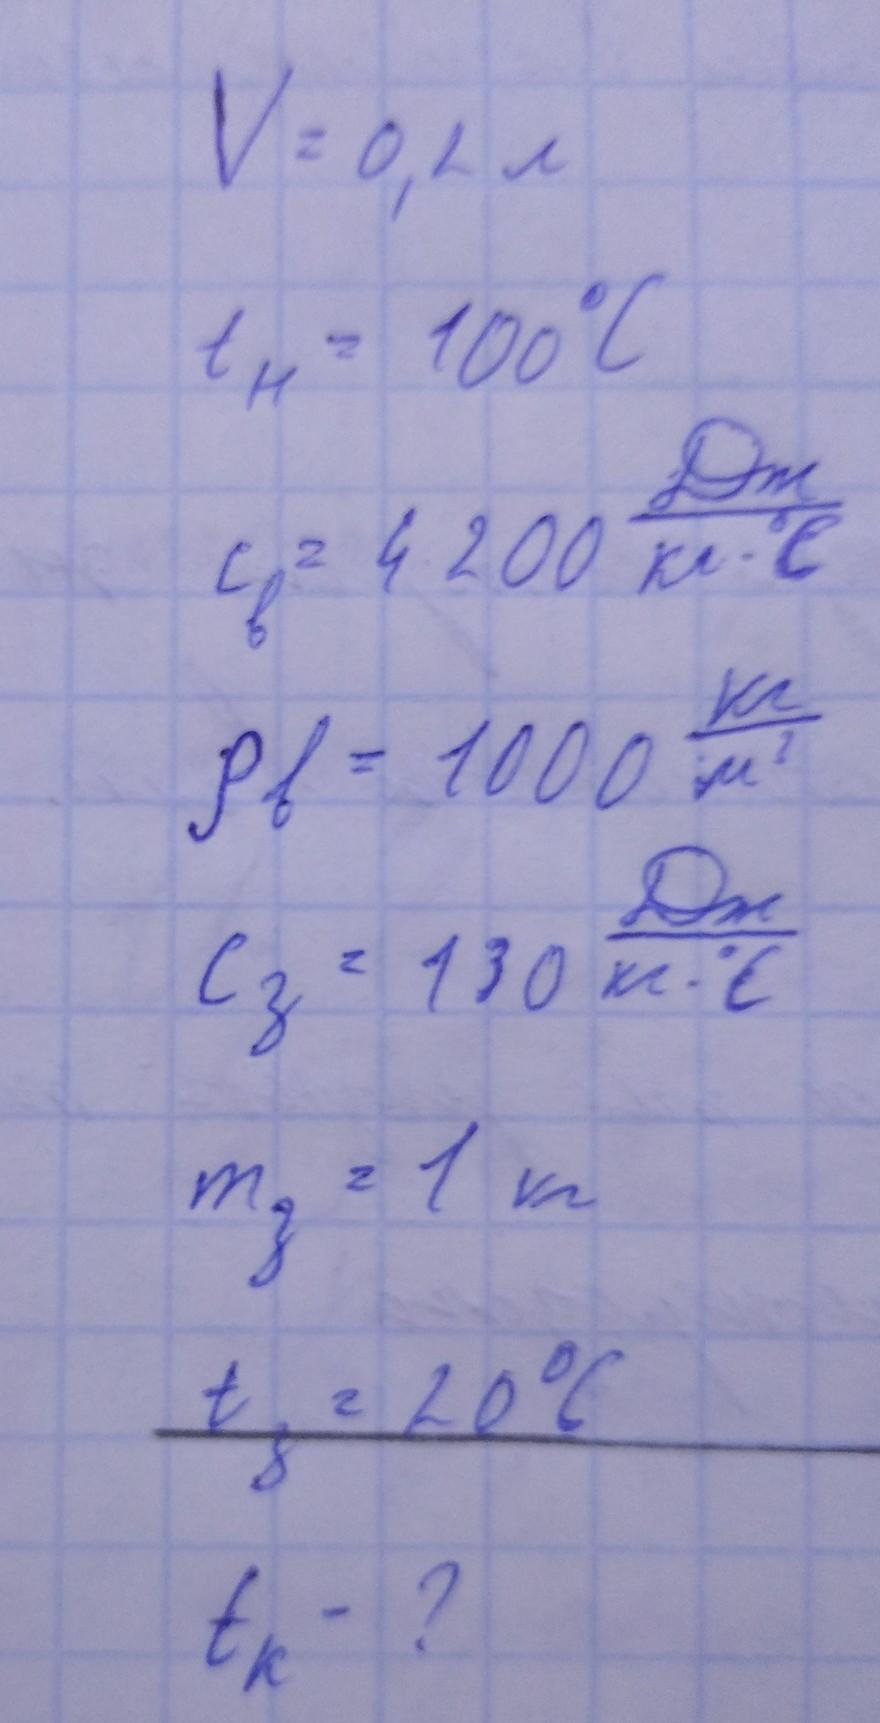 V = 0,2 л
tн = 100°C
cв = 4200 Дж/кг·°C
ρв = 1000 кг/м³
Cз = 130 Дж/кг·°C
mз = 1 кг
tз = 20°C
tк - ?